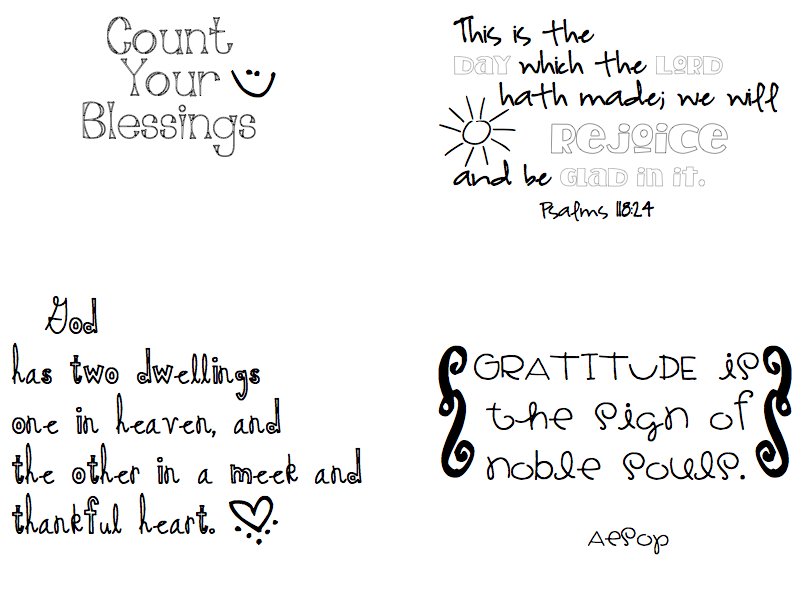 Count
Your
Blessings
This is the
DAY which the LORD
hath made; we will
Rejoice
and be GLAD in it.
Psalms 118:24
God
has two dwellings
one in heaven, and
the other in a meek and
thankful heart.
GRATITUDE is
the sign of
noble souls.
Aesop